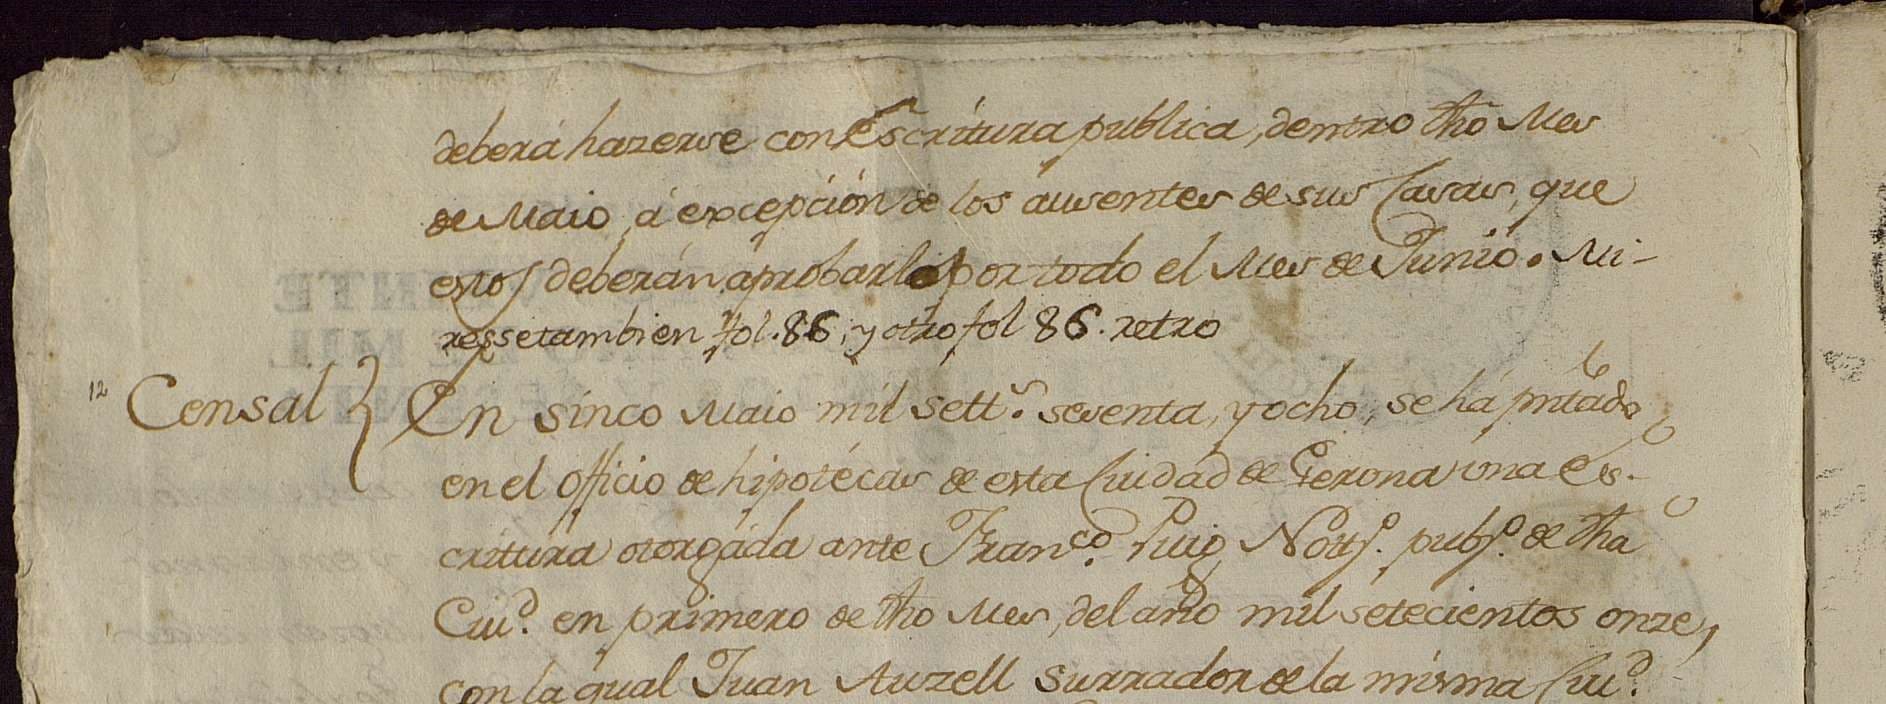 deberá hazerse con Escritura publica, dentro dho Mes
de Maio, á excepción de los ausentes de sus Casas, que
estos deberán aprobarlo por todo el Mes de Junio. Mi-
resse tambien fol. 86, y otro fol 86. retro
12 Censal } En sinco Maio mil sett.s sesenta, y ocho, se há pntado
en el officio de hipotécas de esta Ciudad de Gerona una Es-
critura otorgáda ante Fran.co Puig Nott.o pub.o de dha
Ciu.d en primero de dho Mes, del año mil setecientos onze,
con la qual Juan Auzell Surrador de la misma Ciu.d